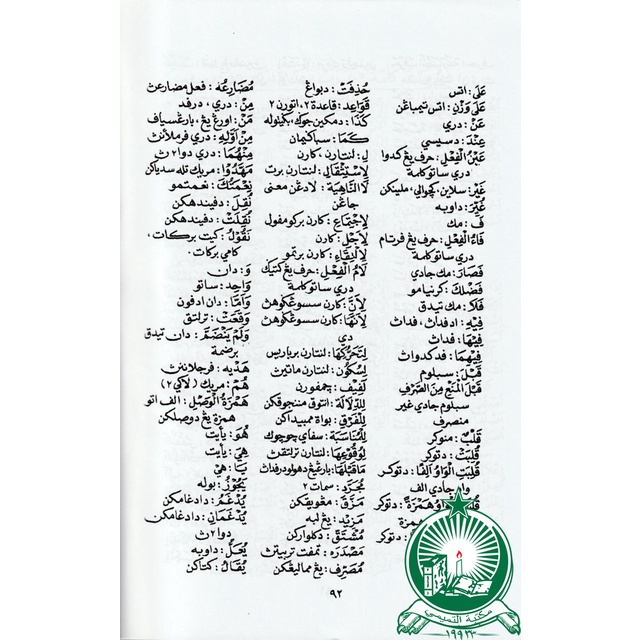 عَلَى: اتس
عَلَى وَزْنِ: اتس تيمباڠن
عَنْ: دري
عِنْدَ: دسيسي
عَيْنُ الْفِعْلِ: حرف يڠ كدوا
دري ساتو كلمة
غَيْر: سلاين، كچوالي، ملينكن
غُيِّرَ: داوبه
فَ: مك
فَاءُ الْفِعْلِ: حرف يڠ فرتام
دري ساتو كلمة
فَصَارَ: مك جادي
فَضْلِكَ: كرنيامو
فَلَا: مك تيدق
فِيْهِ: ادفدان، فداڽ
فِيْهَا: فداڽ
فِيْهِمَا: فدكدواڽ
قَبْلَ: سبلوم
قَبْلَ الْمَنْعِ مِنَ الصَّرْفِ
سبلوم جادي غير
منصرف
قَلْبُ: منوكر
قُلِبَتْ: دتوكر
قُلِبَتِ الْوَاوُ اَلِفًا: دتوكر
واو جادي الف
هَمْزَةً: دتوكر
همزة
دتوكر
حُذِفَتْ: دبواڠ
قَوَاعِد: قاعدة ٢، اتورن ٢
كَذَا: دمكين جوك، بڬيتوله
كَمَا: سباڬيمان
لِ: لنتارن، كارن
لِاسْتِثْقَالِ: لنتارن برت
لَا النَّاهِيَة: لا دڠن معنى
جاڠن
لِاجْتِمَاعِ: كارن بركومفول
لِاَجْلِ: كارن
لِالْتِقَاءِ: كارن برتمو
لَامُ الْفِعْلِ: حرف يڠ كتيڬ
دري ساتو كلمة
لِاَنَّ: كارن سسوڠڬوهڽ
لِاَنَّهَا: كارن سسوڠڬوهڽ
دي
لِتَحَرُّكِهَا: لنتارن برباريس
لِسُكُوْنِ: لنتارن ماتيڽ
لَفِيْف: چمفورن
لِلدِّلَالَةِ: انتوق مننجوقكن
لِلْفَرْقِ: بوات ممبيداكن
لِلْمُنَاسَبَة: سفاي چوچوك
لِوُقُوْعِهَا: لنتارن ترلتقڽ
مَا قَبْلَهَا: بارڠ يڠ دهولو درفداڽ
مُجَرَّد: سمات ٢
مَزَّقَ: مڠويقكن
مَزِيْد: يڠ لبه
مُشْتَقّ: دكلواركن
مَصْدَره: تمفت تربيتڽ
مُصَرِّف: يڠ مماليڠكن
مُضَارِعُه: فعل مضارعڽ
مِنْ: دري، درفد
مَنْ: اورڠ يڠ، بارڠ سياف
مِنْ اَوَّلِهِ: دري فرملاأنڽ
مِنْهُمَا: دري دوا ٢ ڽ
مَهَّدُوْا: مريك تله سدياكن
نِعْمَتُكَ: نعمتمو
نُقِلَ: دفيندهكن
نُقِلَتْ: دفيندهكن
نَقُوْلُ: كيت بركات،
كامي بركات.
وَ: دان
وَاحِد: ساتو
وَاَمَّا: دان ادفون
وَقَعَتْ: ترلتق
وَلَمْ يَنْضَمَّ: دان تيدق
برضمة
هَذِّبْه: فرجلاننڽ
هُمْ: مريك (لاكي ٢)
هَمْزَةُ الْوَصْلِ: الف اتو
همزة يڠ دوصلكن
هُوَ: يأيت
هِيَ: يأيت
يَا: هي
يَجُوْزُ: بوله
يُدْغَمُ: دادغامكن
يُدْغَمَانِ: دادغامكن
دوا ٢ ڽ
يُعَلُّ: داوبه
يُقَالُ: كتاكن
٩٢
مكتبة التميمي
١٩٩٣